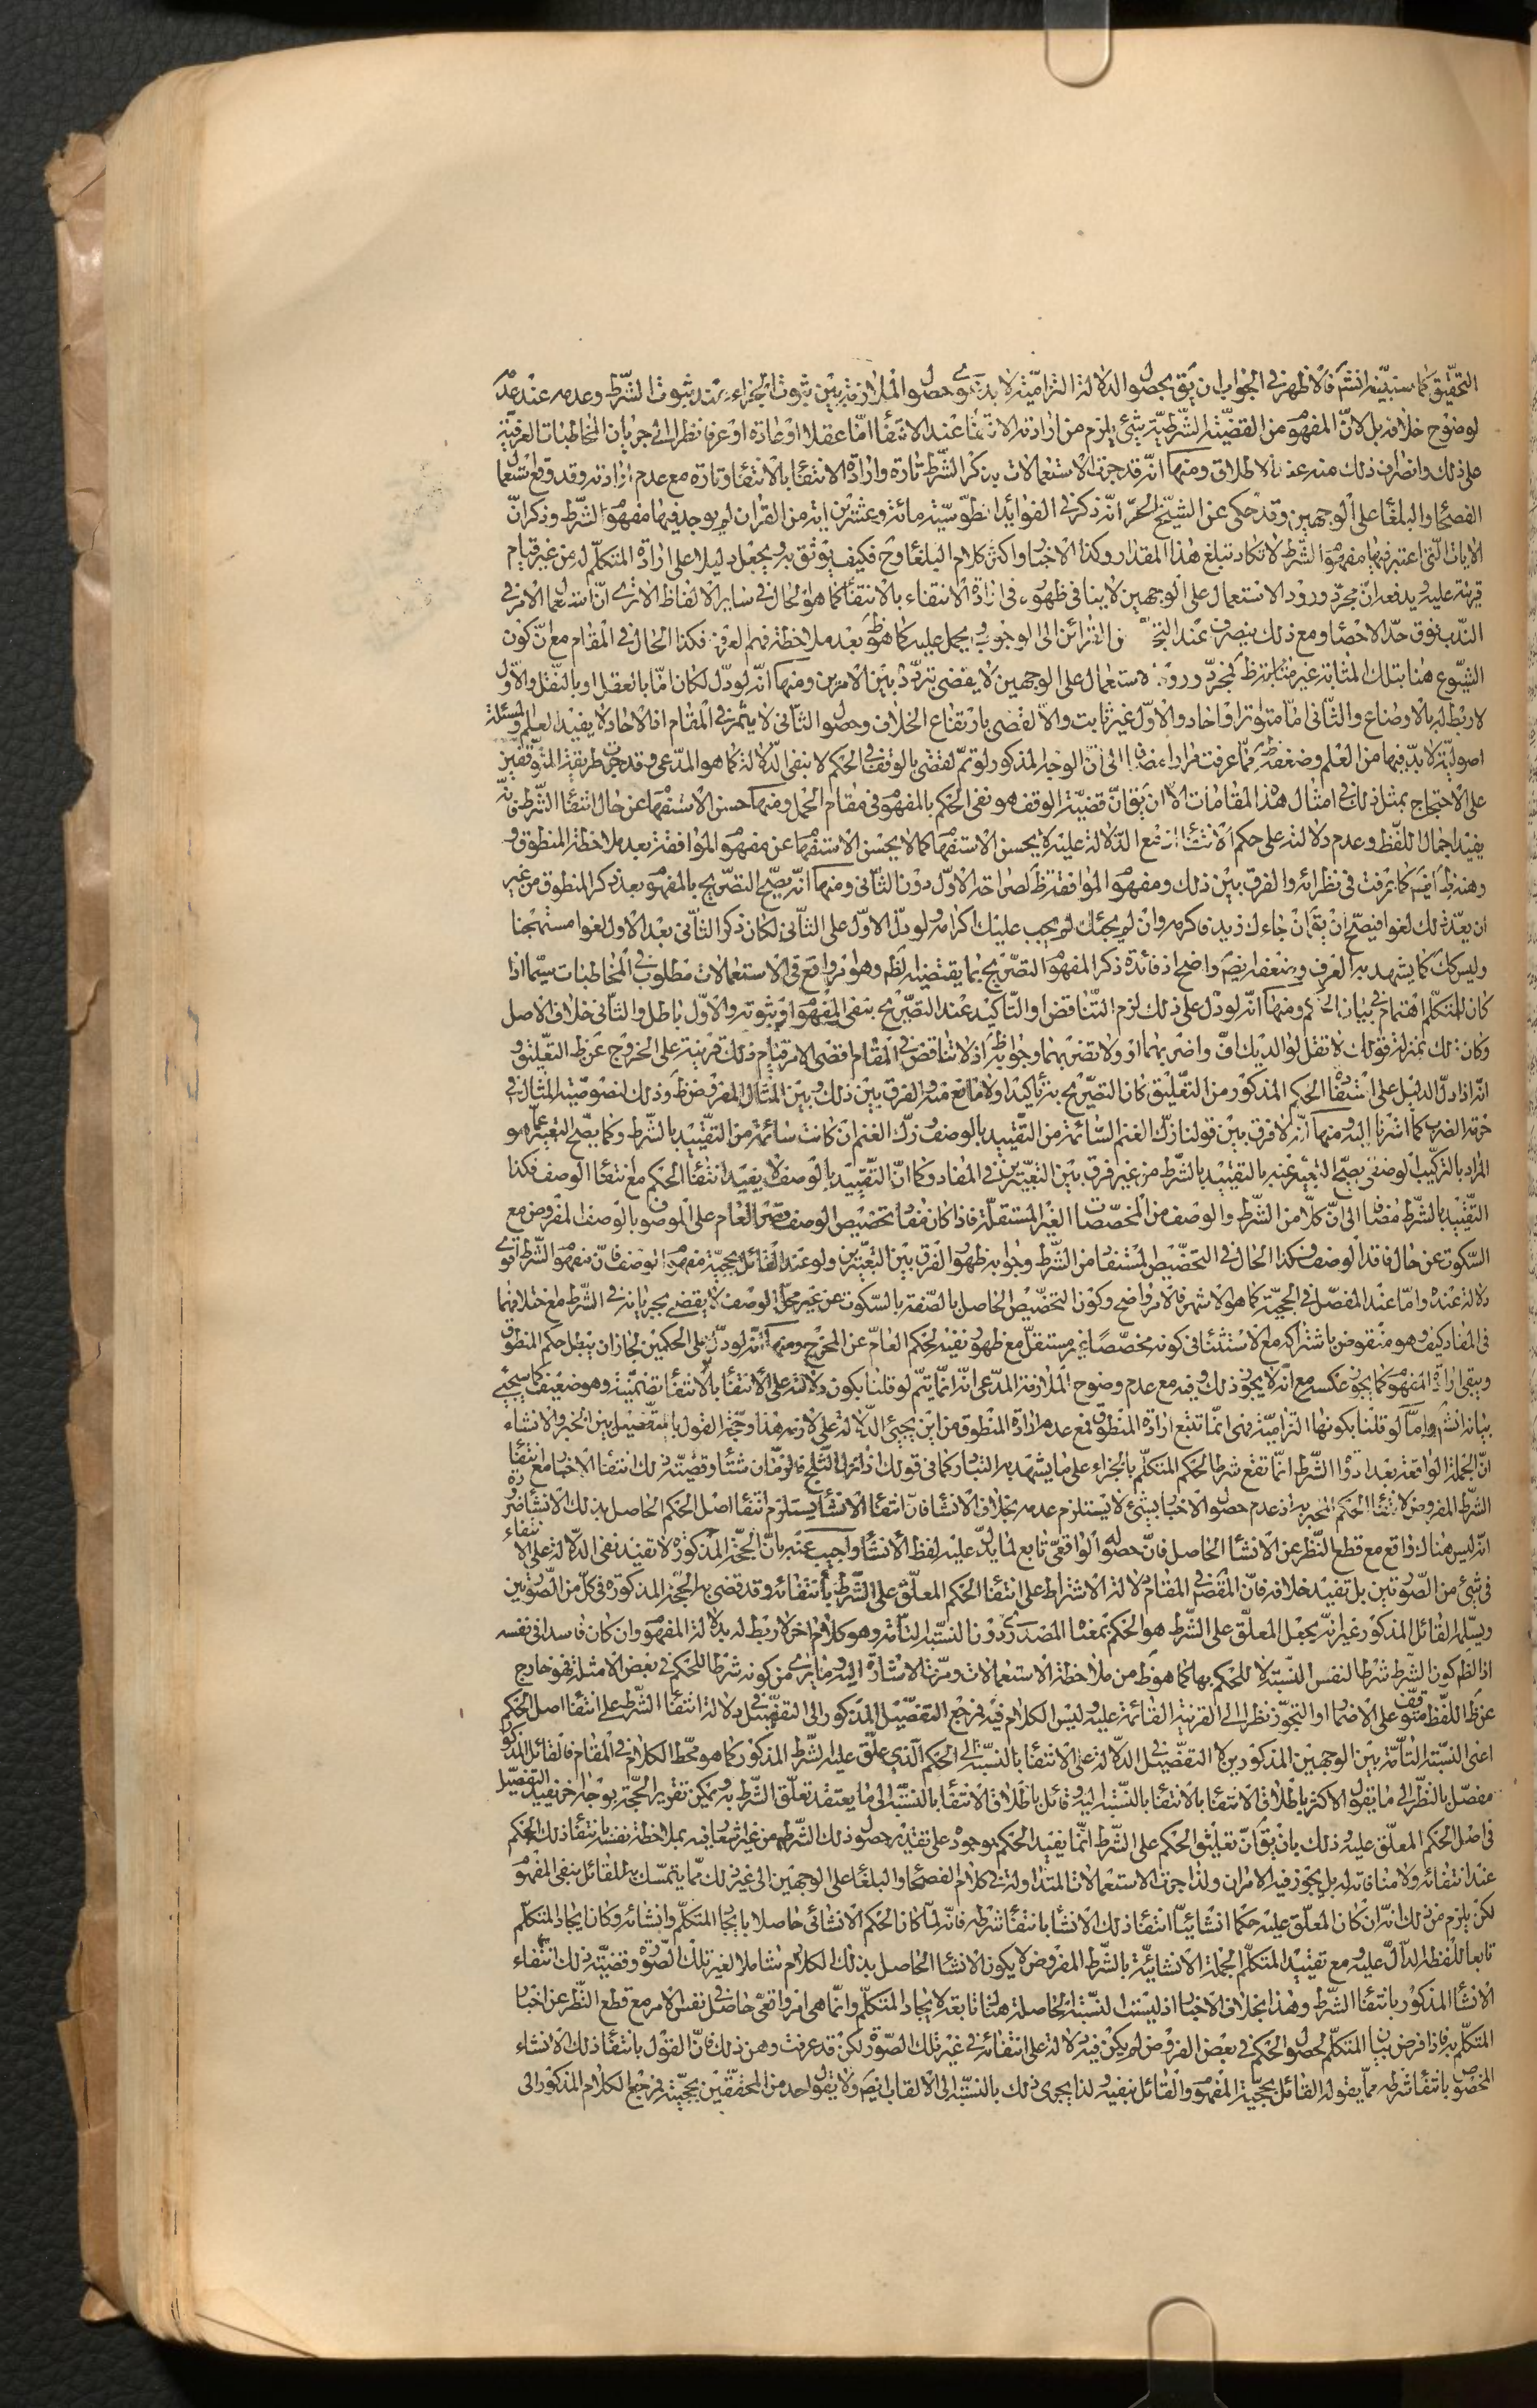 التحقيق كما سنبينه انش فالاظهر في الجواب ان يق بحصول الدلالة التزامية لا بدعوى حصول الملازمة بين ثبوت الجزاء عند ثبوت الشرط وعدمه عند عدمه
لوضوح خلافه بل لان المفهوم من القضية الشرطية شيء يلزم من ارادته الانتفاء عند الانتفاء اما عقلا او عادة او عرفا نظرا الى جريان المخاطبات العرفية
على ذلك وانصراف ذلك منه عند الاطلاق ومنها انه قد جرت الاستعمالات بذكر الشرط تارة وارادة الانتفاء بالانتفاء وتارة مع عدم ارادته وقد وقع استعمال
الفصحاء والبلغاء على الوجهين وقد حكى عن الشيخ الحر انه ذكر في الفوائد الطوسية مائة وعشرين اية من القران لم يوجد فيها مفهوم الشرط وذكر ان
الايات التي اعتبر فيها مفهوم الشرط لا تكاد تبلغ هذا المقدار وكذا الاخبار واكثر كلام البلغاء وح فكيف يوثق به ويجعل دليلا على ارادة المتكلم له من غير قيام
قرينة عليه ويدفعه ان مجرد ورود الاستعمال على الوجهين لا ينافي ظهوره في ارادة الانتفاء بالانتفاء كما هو الحال في ساير الالفاظ الا ترى ان استعمال الامر في
الندب فوق حد الاحصاء ومع ذلك ينصرف عند التجرد من القرائن الى الوجوب ويحمل عليه كما هو ظ بعد ملاحظة فهم العرف فكذا الحال في المقام مع ان كون
الشيوع هنا بتلك المثابة غير ظ لمجرد ورود الاستعمال على الوجهين لا يقضى بتردد بين الامرين ومنها انه لو دل لكان اما بالعقل او بالنقل والاول
لا ربط له بالاوضاع والثاني اما متواتر او احاد والاول غير ثابت والا لقضى بارتفاع الخلاف وحصول الثاني لا يثمر في المقام اذ الاحاد لا يفيد العلم والمسئلة
اصولية لا بد فيها من العلم وضعفه ظ مما عرفت مرارا مضافا الى ان الوجه المذكور لو تم لقضى بالوقف في الحكم لا بنفي الدلالة كما هو المدعى وقد جرت طريقة المتوقفين
على الاحتجاج بمثل ذلك في امثال هذه المقامات الا ان يق ان قضية الوقف هو نفي الحكم بالمفهوم في مقام الحمل ومنها حسن الاستفهام عن حال انتفاء الشرط فانه
يفيد اجمال اللفظ وعدم دلالته على حكم الانتفاء اذ مع الدلالة عليه لا يحسن الاستفهام كما لا يحسن الاستفهام عن مفهوم الموافقة بعد ملاحظة المنطوق و
وهنه ظ ايضا كما عرفت في نظرائه والفرق بين ذلك ومفهوم الموافقة ظ لصراحة الاول دون الثاني ومنها انه يصح التصريح بالمفهوم بعد ذكر المنطوق من غير
ان يعد ذلك لغوا فيصح ان يق ان جاءك زيد فاكرمه وان لم يجئك لم يجب عليك اكرامه ولو دل الاول على الثاني لكان ذكر الثاني بعد الاول لغوا مستهجنا
وليس كك كما يشهد به العرف وضعفه ايضا واضح اذ فائدة ذكر المفهوم التصريح بما يقتضيه الظ وهو امر واقع في الاستعمالات مطلوب في المخاطبات سيما اذا
كان للمتكلم اهتمام في بيان الحكم ومنها انه لو دل على ذلك لزم التناقض او التاكيد عند التصريح بنفي المفهوم او ثبوته والاول باطل والثاني خلاف الاصل
وكان ذلك بمنزلة قولك لا تقل لوالديك اف واضربهما او ولا تضربهما وجوابه ظ اذ لا تناقض في المقام اقضى الامر قيام ذلك قرينة على الخروج عن ظ التعليق و
انه اذا دل الدليل على انتفاء الحكم المذكور من التعليق كان التصريح به تاكيدا ولا مانع منه والفرق بين ذلك وبين المثال المفروض ظ وذلك لخصوصية المثال في
حرمة الضرب كما اشرنا اليه ومنها انه لا فرق بين قولنا زك الغنم السائمة من التقييد بالوصف وزك الغنم ان كانت سائمة من التقييد بالشرط وكما يصح التعبير عما هو
المراد بالتركيب الوصفي يصح التعبير عنه بالتقييد بالشرط من غير فرق بين التعبيرين في المفاد وكما ان التقييد بالوصف لا يفيد انتفاء الحكم مع انتفاء الوصف فكذا
التقييد بالشرط مضافا الى ان كلا من الشرط والوصف من المخصصات الغير المستقلة فاذا كان مفاد تخصيص الوصف قصر العام على الموصوف بالوصف المفروض مع
السكوت عن حال فاقد الوصف فكذا الحال في التخصيص المستفاد من الشرط وجوابه ظهور الفرق بين التعبيرين ولو عند القائل بحجية مفهوم الوصف فان مفهوم الشرط اقوى
دلالة عنده واما عند المفصل في الحجية كما هو الاشهر فالامر واضح وكون التخصيص الحاصل بالصفة بالسكوت عن غير محل الوصف لا يقضى بجريانه في الشرط مع اختلافهما
في المفاد كيف وهو منقوض باشتراكه مع الاستثناء في كونه مخصصا غير مستقل مع ظهور نفيه لحكم العام عن المخرج ومنها انه لو دل على الحكمين لجاز ان يبطل حكم المنطوق
ويبقى ارادة المفهوم كما يجوز عكسه مع انه لا يجوز ذلك وفيه مع عدم وضوح الملازمة المدعى انه انما يتم لو قلنا بكون دلالته على الانتفاء بالانتفاء تضمنية وهو ضعيف كما سيجئ
بيانه انش واما لو قلنا بكونها التزامية فهى انما تتبع ارادة المنطوق فمع عدم ارادة المنطوق من اين يجئ الدلالة على لازمه هذا وحجة القول بالتفصيل بين الخبر والانشاء
ان الجملة الواقعة بعد ادوات الشرط انما تقع شرطا لحكم المتكلم بالجزاء على ما يشهد به التبادر كما في قولك اذا نزل الثلج فالزمان شتاء وقضية ذلك انتفاء الاخبار مع انتفاء
الشرط المفروض لا انتفاء الحكم المخبر به اذ عدم حصول الاخبار بشئ لا يستلزم عدمه بخلاف الانشاء فان انتفاء الانشاء يستلزم انتفاء اصل الحكم الحاصل بذلك الانشاء ضرورة
انه ليس هناك واقع مع قطع النظر عن الانشاء الحاصل فان حصوله الواقعي تابع لما يدل عليه لفظ الانشاء واجيب عنه بان الحجة المذكورة لا تفيد نفى الدلالة على الانتفاء
في شئ من الصورتين بل تفيد خلافه فان المقصود في المقام دلالة الاشتراط على انتفاء الحكم المعلق على الشرط بانتفائه وقد قضى به الحجة المذكورة في كل من الصورتين
ويسلمه القائل المذكور غير انه يجعل المعلق على الشرط هو الحكم بمعناه المصدرى دون النسبة التامة وهو كلام اخر لا ربط له بدلالة المفهوم وان كان فاسدا في نفسه
اذ الظ كون الشرط شرطا لنفس النسبة لا للحكم بها كما هو ظ من ملاحظة الاستعمالات ومرت الاشارة اليه وما يرى من كونه شرطا للحكم في بعض الامثلة فهو خارج
عن ظ اللفظ متوقف على الاضمار او التجوز نظرا الى القرينة القائمة عليه وليس الكلام فيه فمرجع التفصيل المذكور الى التفصيل في دلالة انتفاء الشرط على انتفاء اصل الحكم
اعنى النسبة التامة بين الوجهين المذكورين لا التفصيل في الدلالة على الانتفاء بالنسبة الى الحكم الذي علق عليه الشرط المذكور كما هو محط الكلام في المقام فالقائل المذكور
مفصل بالنظر الى ما يقول الاكثر باطلاق الانتفاء بالانتفاء بالنسبة اليه وقائل باطلاق الانتفاء بالنسبة الى ما يعتقد تعلق الشرط به ويمكن تقرير الحجة بوجه اخر يفيد التفصيل
في اصل الحكم المعلق عليه وذلك بان يق ان تعليق الحكم على الشرط انما يفيد الحكم بوجوده على تقدير حصول ذلك الشرط من غير اشعار فيه بملاحظة نفسه بانتفاء ذلك الحكم
عند انتفائه ولا منافاته له بل يجوز فيه الامران ولذا جرت الاستعمالات المتداولة في كلام الفصحاء والبلغاء على الوجهين الى غير ذلك مما يتمسك به للقائل بنفي المفهوم
لكن يلزم من ذلك انه ان كان المعلق عليه حكما انشائيا انتفاء ذلك الانشاء بانتفاء شرطه فانه لما كان الحكم الانشائى حاصلا بايجاد المتكلم وانشائه وكان ايجاد المتكلم
تابعا للفظه الدال عليه مع تقييد المتكلم الجملة الانشائية بالشرط المفروض لا يكون الانشاء الحاصل بذلك الكلام شاملا لغير تلك الصورة وقضية ذلك انتفاء
الانشاء المذكور بانتفاء الشرط وهذا بخلاف الاخبار اذ ليست النسبة الحاصلة هناك تابعة لايجاد المتكلم وانما هى امر واقعى حاصل في نفس الامر مع قطع النظر عن اخبار
المتكلم به فاذا فرض بيان المتكلم لحصول الحكم في بعض الفروض لم يكن فيه دلالة على انتفائه في غير تلك الصورة لكن قد عرفت وهن ذلك فان القول بانتفاء ذلك الانشاء
المخصوص بانتفاء شرطه مما يقوله القائل بحجية المفهوم والقائل بنفيه ولذا يجرى ذلك بالنسبة الى الالقاب ايضا ولا يقول احد من المحققين بحجيته فمرجع الكلام المذكور الى